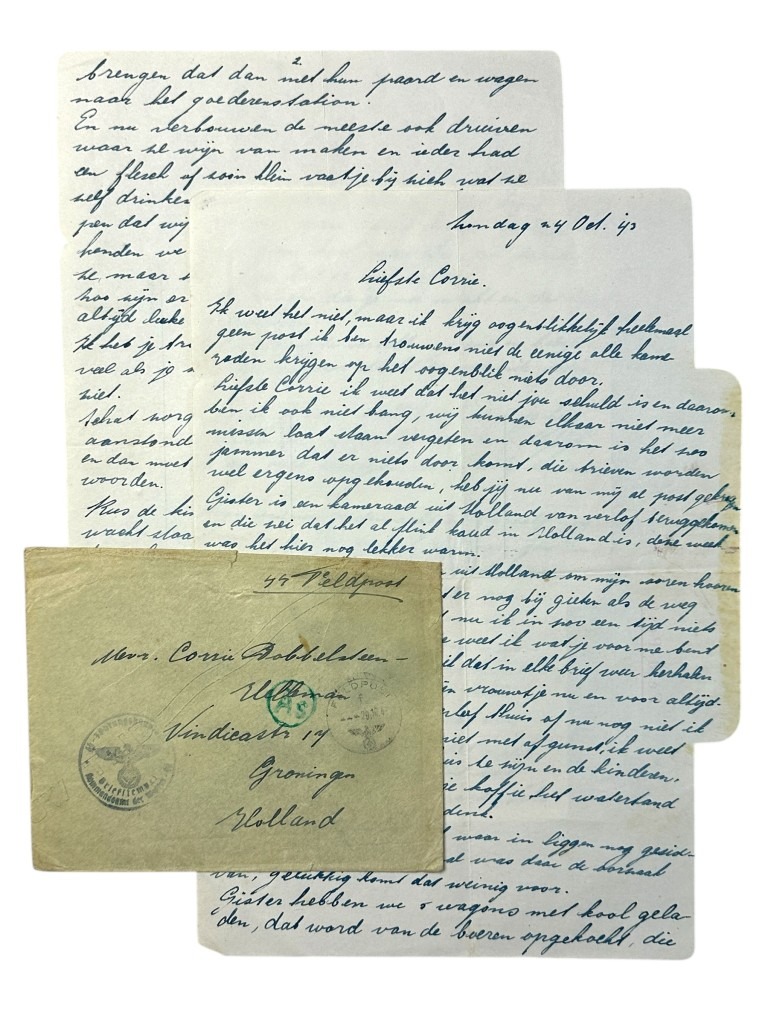 2.
brengen dat dan met hun paard en wagen
naar het goederenstation.
En nu verbouwen de meeste ook druiven
waar ze wijn van maken en ieder had
een flesch of zoo'n klein vaatje bij zich wat ze
zelf drinken
pen dat wij
honden ve
ze maar
zoo zijn er
altijd leuke
Ik heb je
veel als jo
niet.
schat
aanstond
en dan moet
woorden.
Kus de
wacht staa
Zondag 24 Oct. '43
Liefste Corrie.
Ik weet het niet, maar ik krijg oogenblikkelijk heelemaal
geen post ik ben trouwens niet de eenige alle kame
raden krijgen op het oogenblik niets door.
Liefste Corrie ik weet dat het niet jou schuld is en daarom
ben ik ook niet bang, wij kunnen elkaar niet meer
missen laat staan vergeten en daarom is het zoo
jammer dat er niets door komt, die brieven worden
wel ergens opgehouden, heb jij nu van mij al post gekregen
Gister is een kameraad uit Holland van verlof teruggekomen
en die zei dat het al flink koud in Holland is, deze week
was het hier nog lekker warm.
uit Holland om mijn ooren hooren
er nog bij gieten als de weg
nu ik in zoo een tijd niets
weet ik wat je voor me bent
dat in elke brief weer herhalen
vrouwtje nu en voor altijd.
verlof thuis of nu nog niet ik
niet met afgunst, ik weet
te zijn en de kinderen,
koffie, het waterland
denk.
waar in liggen nog
was daar de oorzaak
van, gelukkig komt dat weinig voor.
Gister hebben we 5 wagons met kool gela-
den, dat word van de boeren opgekocht, die
SS Feldpost
Mevr. Corrie Dobbelsteen-
Willeman
Vindicastr 17
Groningen
Holland
As
FELDPOST
Briefstempel